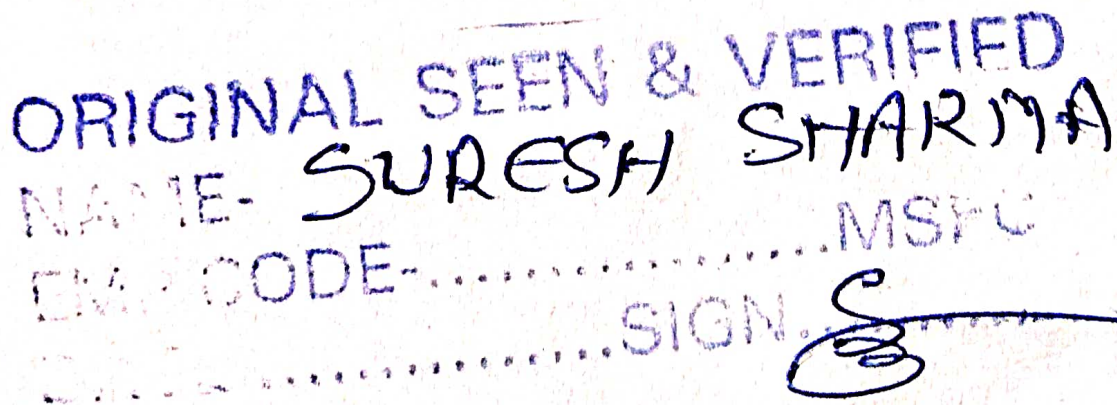 ORIGINAL SEEN & VERIFIED
NAME- SURESH SHARMA
EMP CODE-....................MSFC
....................SIGN..........